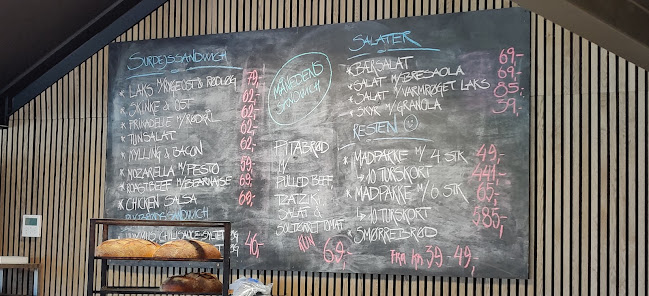 SURDEJSSANDWICH
* LAKS M/RYGEOST & RØDLØG 79,-
* SKINKE & OST 62,-
* FRIKADELLE M/RØDKÅL 62,-
* TUNSALAT 62,-
* KYLLING & BACON 62,-
* MOZARELLA M/PESTO 69,-
* ROASTBEEF M/BEARNAISE 69,-
* CHICKEN SALSA 69,-
RUGBRØDSSANDWICH
46,-
MÅNEDENS SANDWICH
PITABRØD
M/
PULLED BEEF,
TZATZIKI
SALAT &
SOLTØRRET TOMAT
KUN 69,-
SALATER
* BÆRSALAT 69,-
* SALAT M/BRESAOLA 69,-
* SALAT M/VARMRØGET LAKS 85,-
* SKYR M/GRANOLA 39,-
RESTEN
* MADPAKKE M/ 4 STK 49,-
→ 10 TURSKORT 441,-
* MADPAKKE M/ 6 STK 65,-
→ 10 TURSKORT 585,-
* SMØRREBRØD
FRA KR 39-49,-